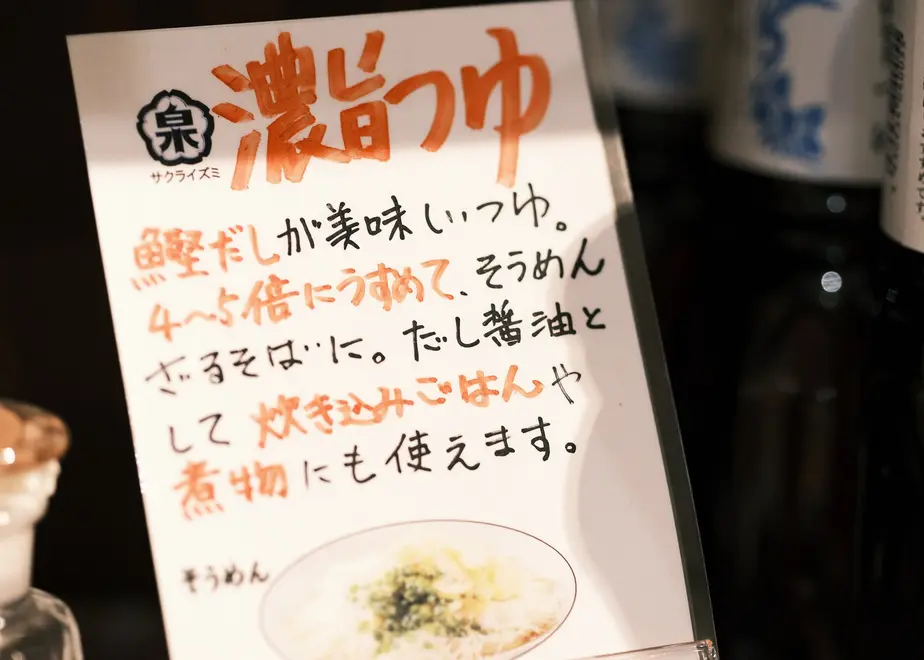 濃旨つゆ
泉
サクライズミ
鰹だしが美味しいつゆ。
4〜5倍にうすめて、そうめん
ざるそばに。だし醤油と
して炊き込みごはんや
煮物にも使えます。
そうめん